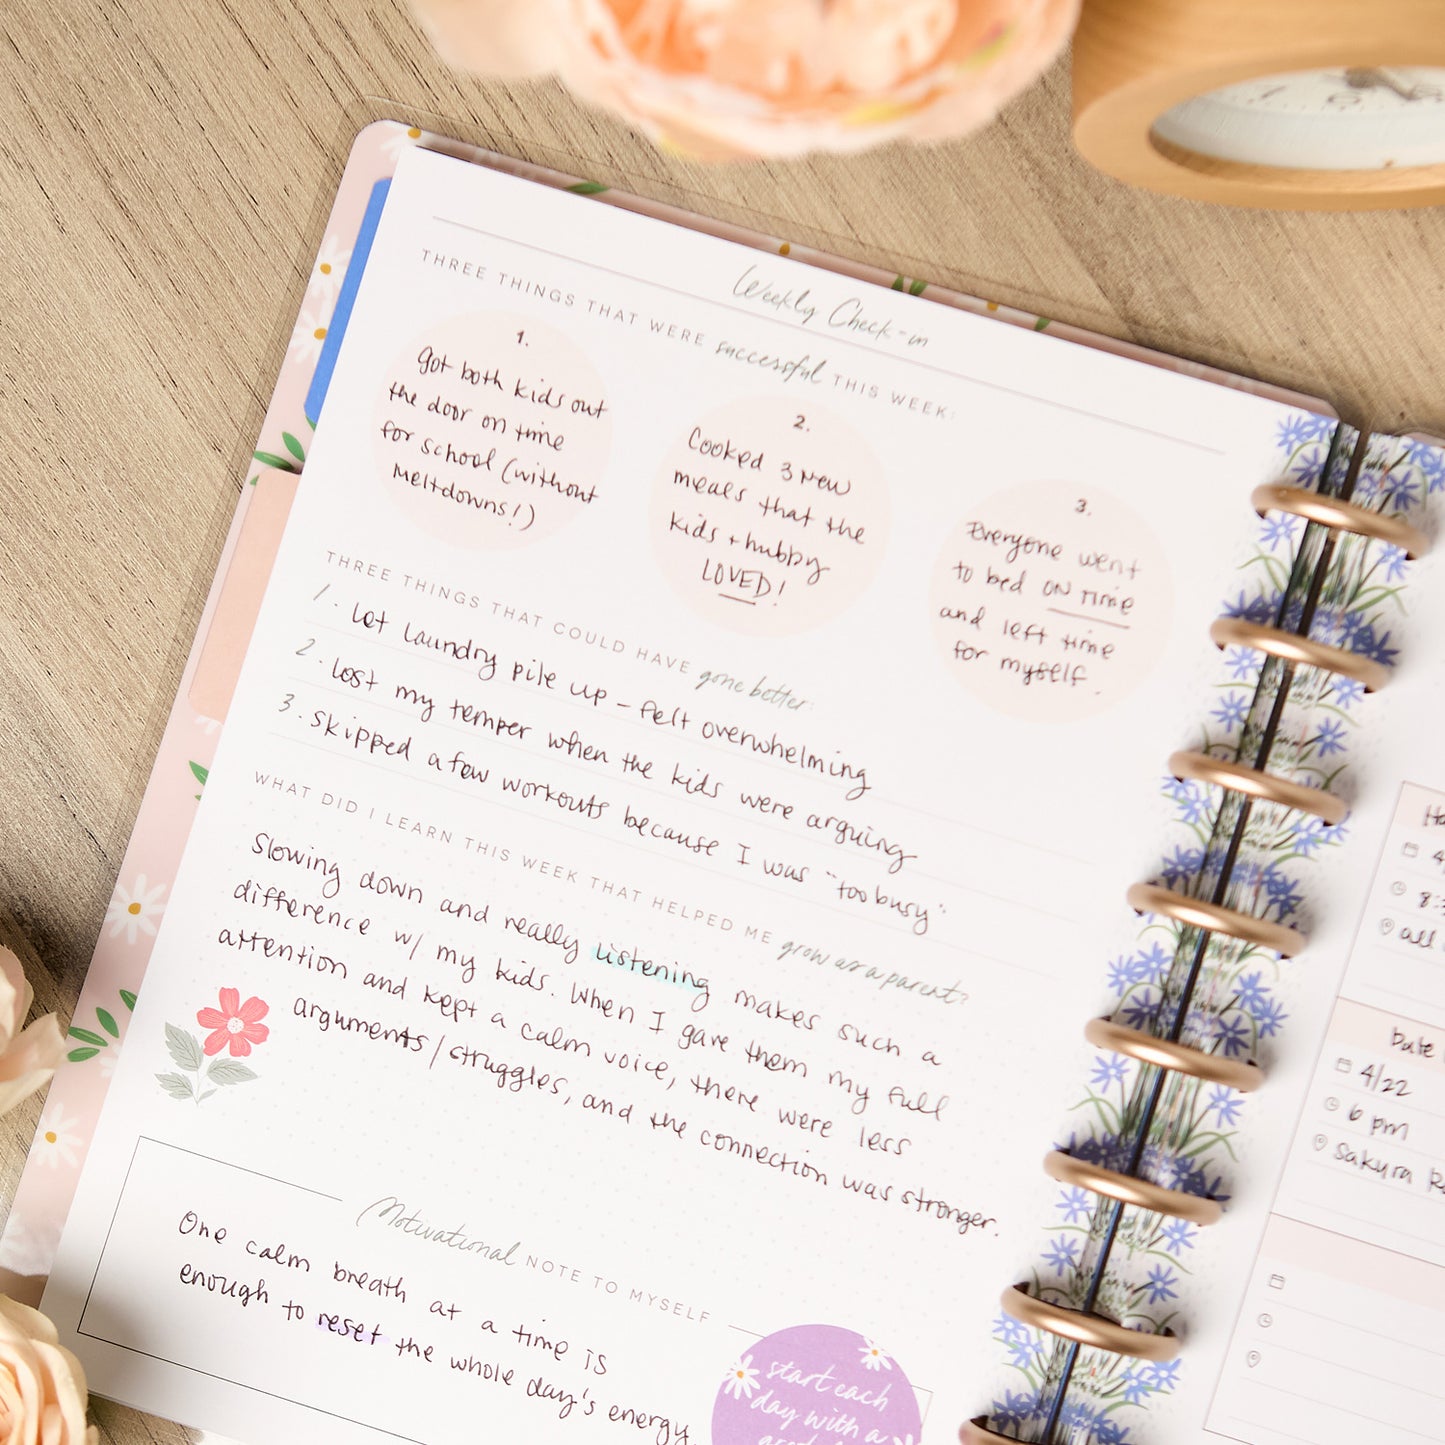 Weekly Check-in
THREE THINGS THAT WERE successful THIS WEEK:
1.
Got both kids out
the door on time
for school (without
meltdowns!)
2.
Cooked 3 new
meals that the
kids + hubby
LOVED!
3.
Everyone went
to bed ON TIME
and left time
for myself.
THREE THINGS THAT COULD HAVE gone better:
1. Let laundry pile up - felt overwhelming
2. Lost my temper when the kids were arguing
3. Skipped a few workouts because I was "too busy"
WHAT DID I LEARN THIS WEEK THAT HELPED ME grow as a parent?
Slowing down and really listening makes such a
difference w/ my kids. When I gave them my full
attention and kept a calm voice, there were less
arguments/struggles, and the connection was stronger.
Motivational NOTE TO MYSELF
One calm breath at a time is
enough to reset the whole day's energy.
start each
day with a
Date
4/22
6 pm
Sakura
all